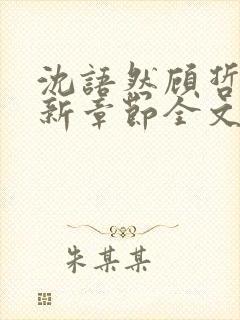 沈語然顾哲
新章節全文
朱某某